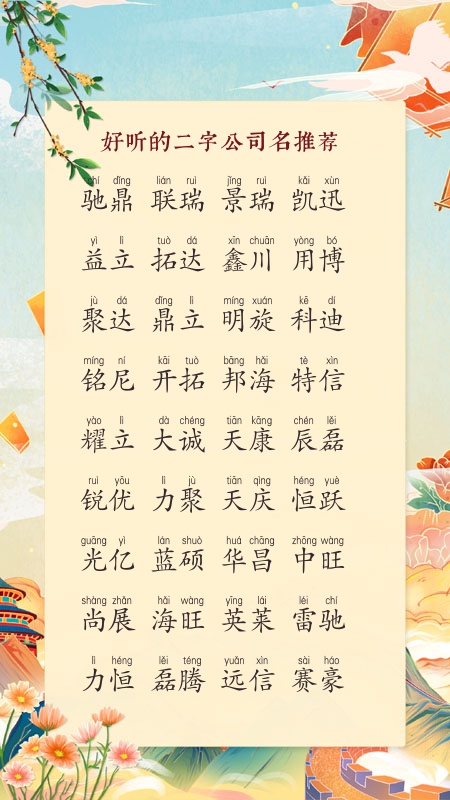 好听的二字公司名推荐
chí dǐng lián ruì jǐng ruì kǎi xùn
驰鼎 联瑞 景瑞 凯迅
yì lì tuò dá xīn chuān yòng bó
益立 拓达 鑫川 用博
jù dá dǐng lì míng xuán kē dí
聚达 鼎立 明旋 科迪
míng ní kāi tuò bāng hǎi tè xìn
铭尼 开拓 邦海 特信
yào lì dà chéng tiān kāng chén lěi
耀立 大诚 天康 辰磊
ruì yōu lì jù tiān qìng héng yuè
锐优 力聚 天庆 恒跃
guāng yì lán shuò huá chāng zhōng wàng
光亿 蓝硕 华昌 中旺
shàng zhǎn hǎi wàng yīng lái léi chí
尚展 海旺 英莱 雷驰
lì héng lěi téng yuǎn xìn sài háo
力恒 磊腾 远信 赛豪